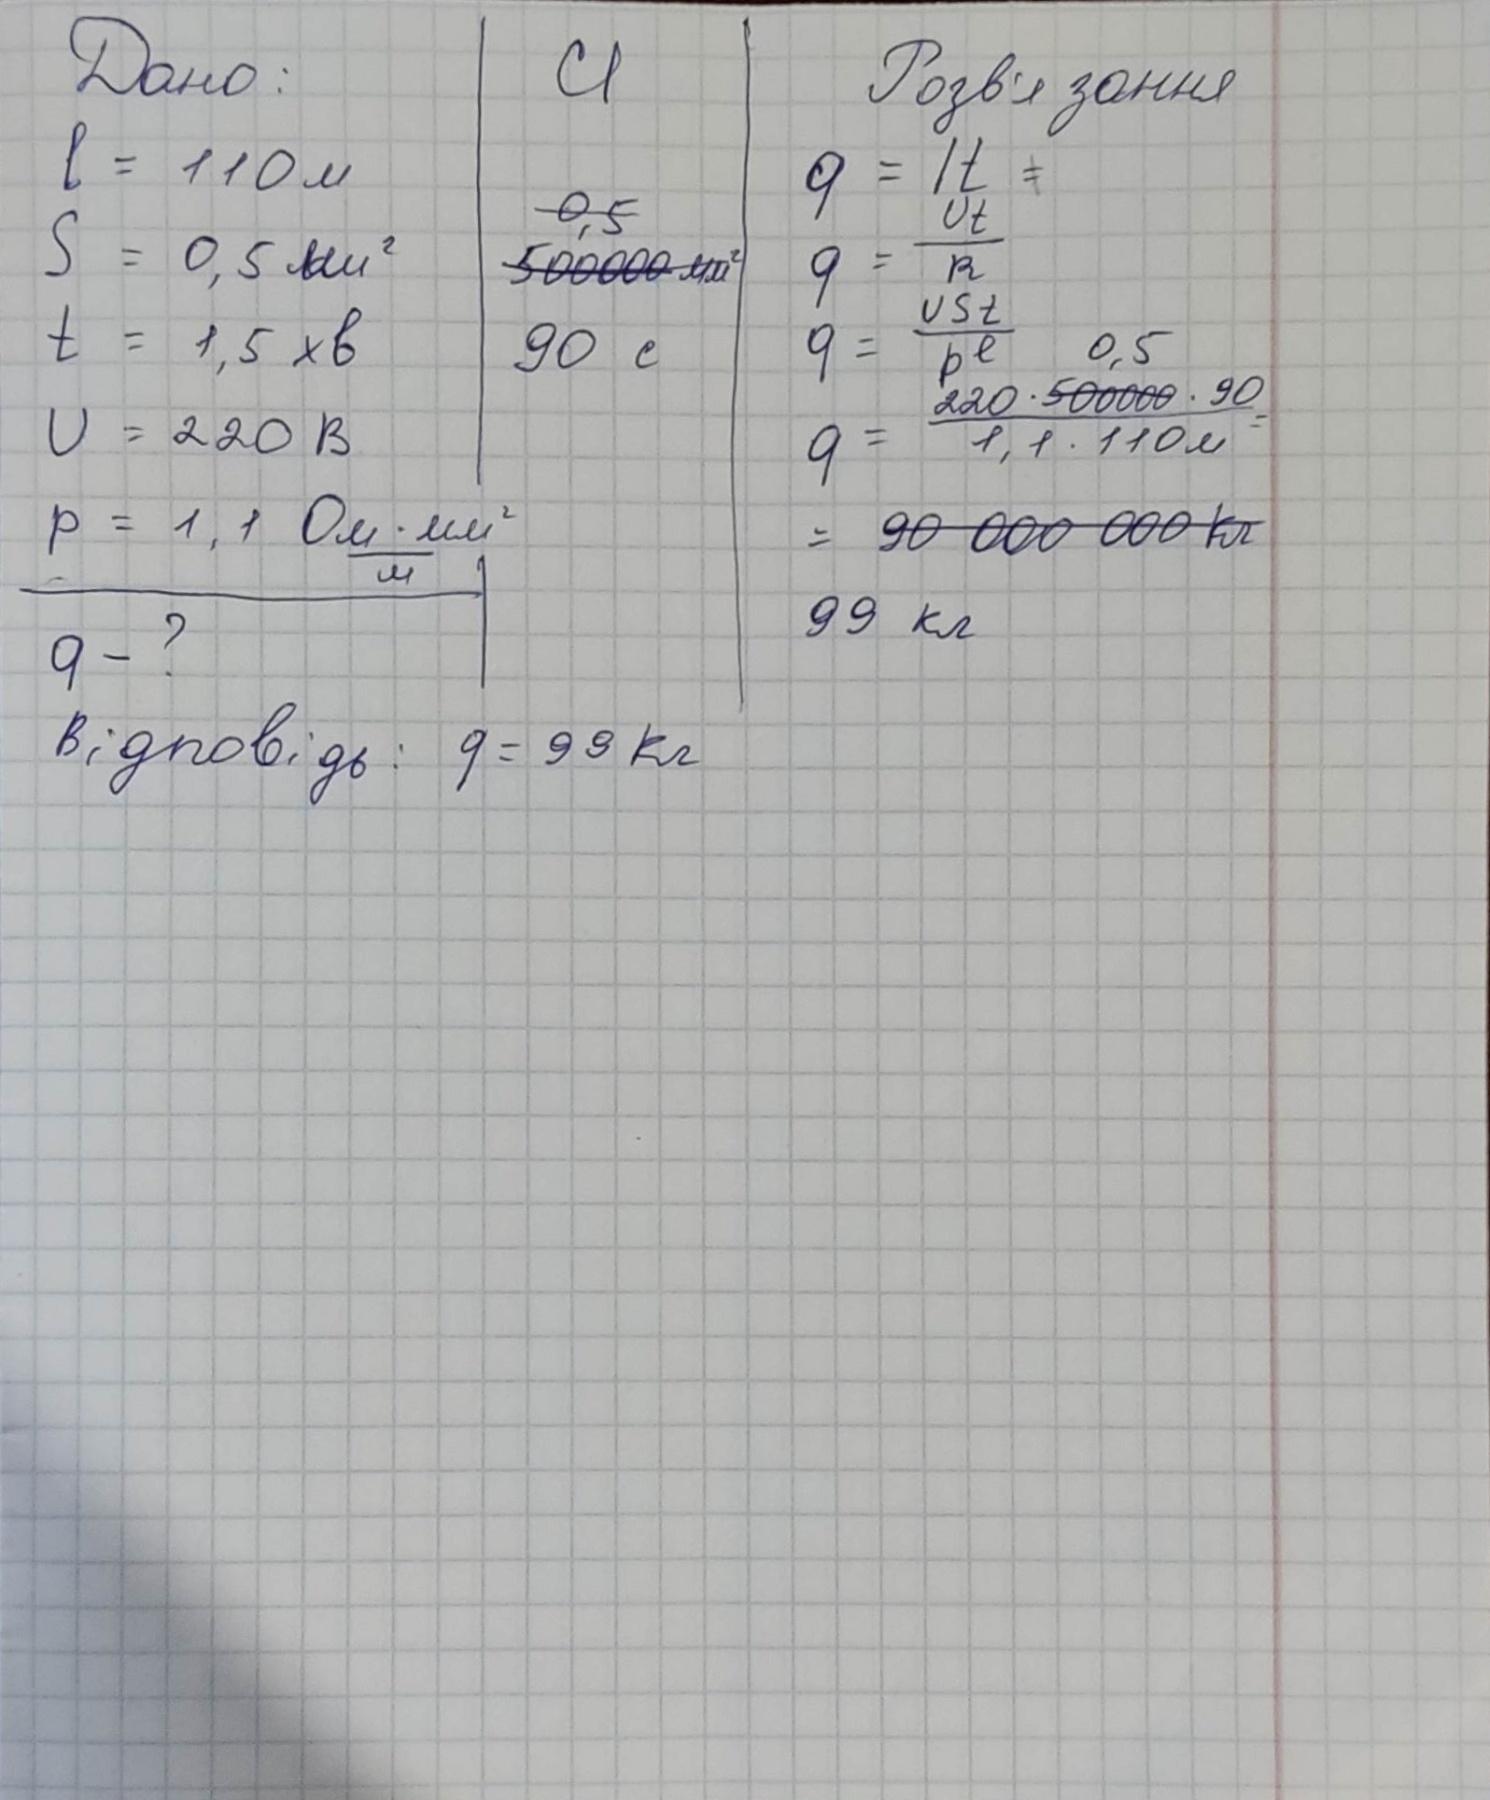 Дано:
l = 110 м
S = 0,5 мм²
t = 1,5 хв
U = 220 В
p = 1,1 Ом·мм²/м
q - ?
СІ
0,5
500000 мм²
90 с
Розв'язання
q = It =
q = Ut/R
q = USt/pl
0,5
q = 220 · 500000 · 90 / 1,1 · 110 м =
= 90 000 000 Кл
99 кл
Відповідь: q = 99 Кл